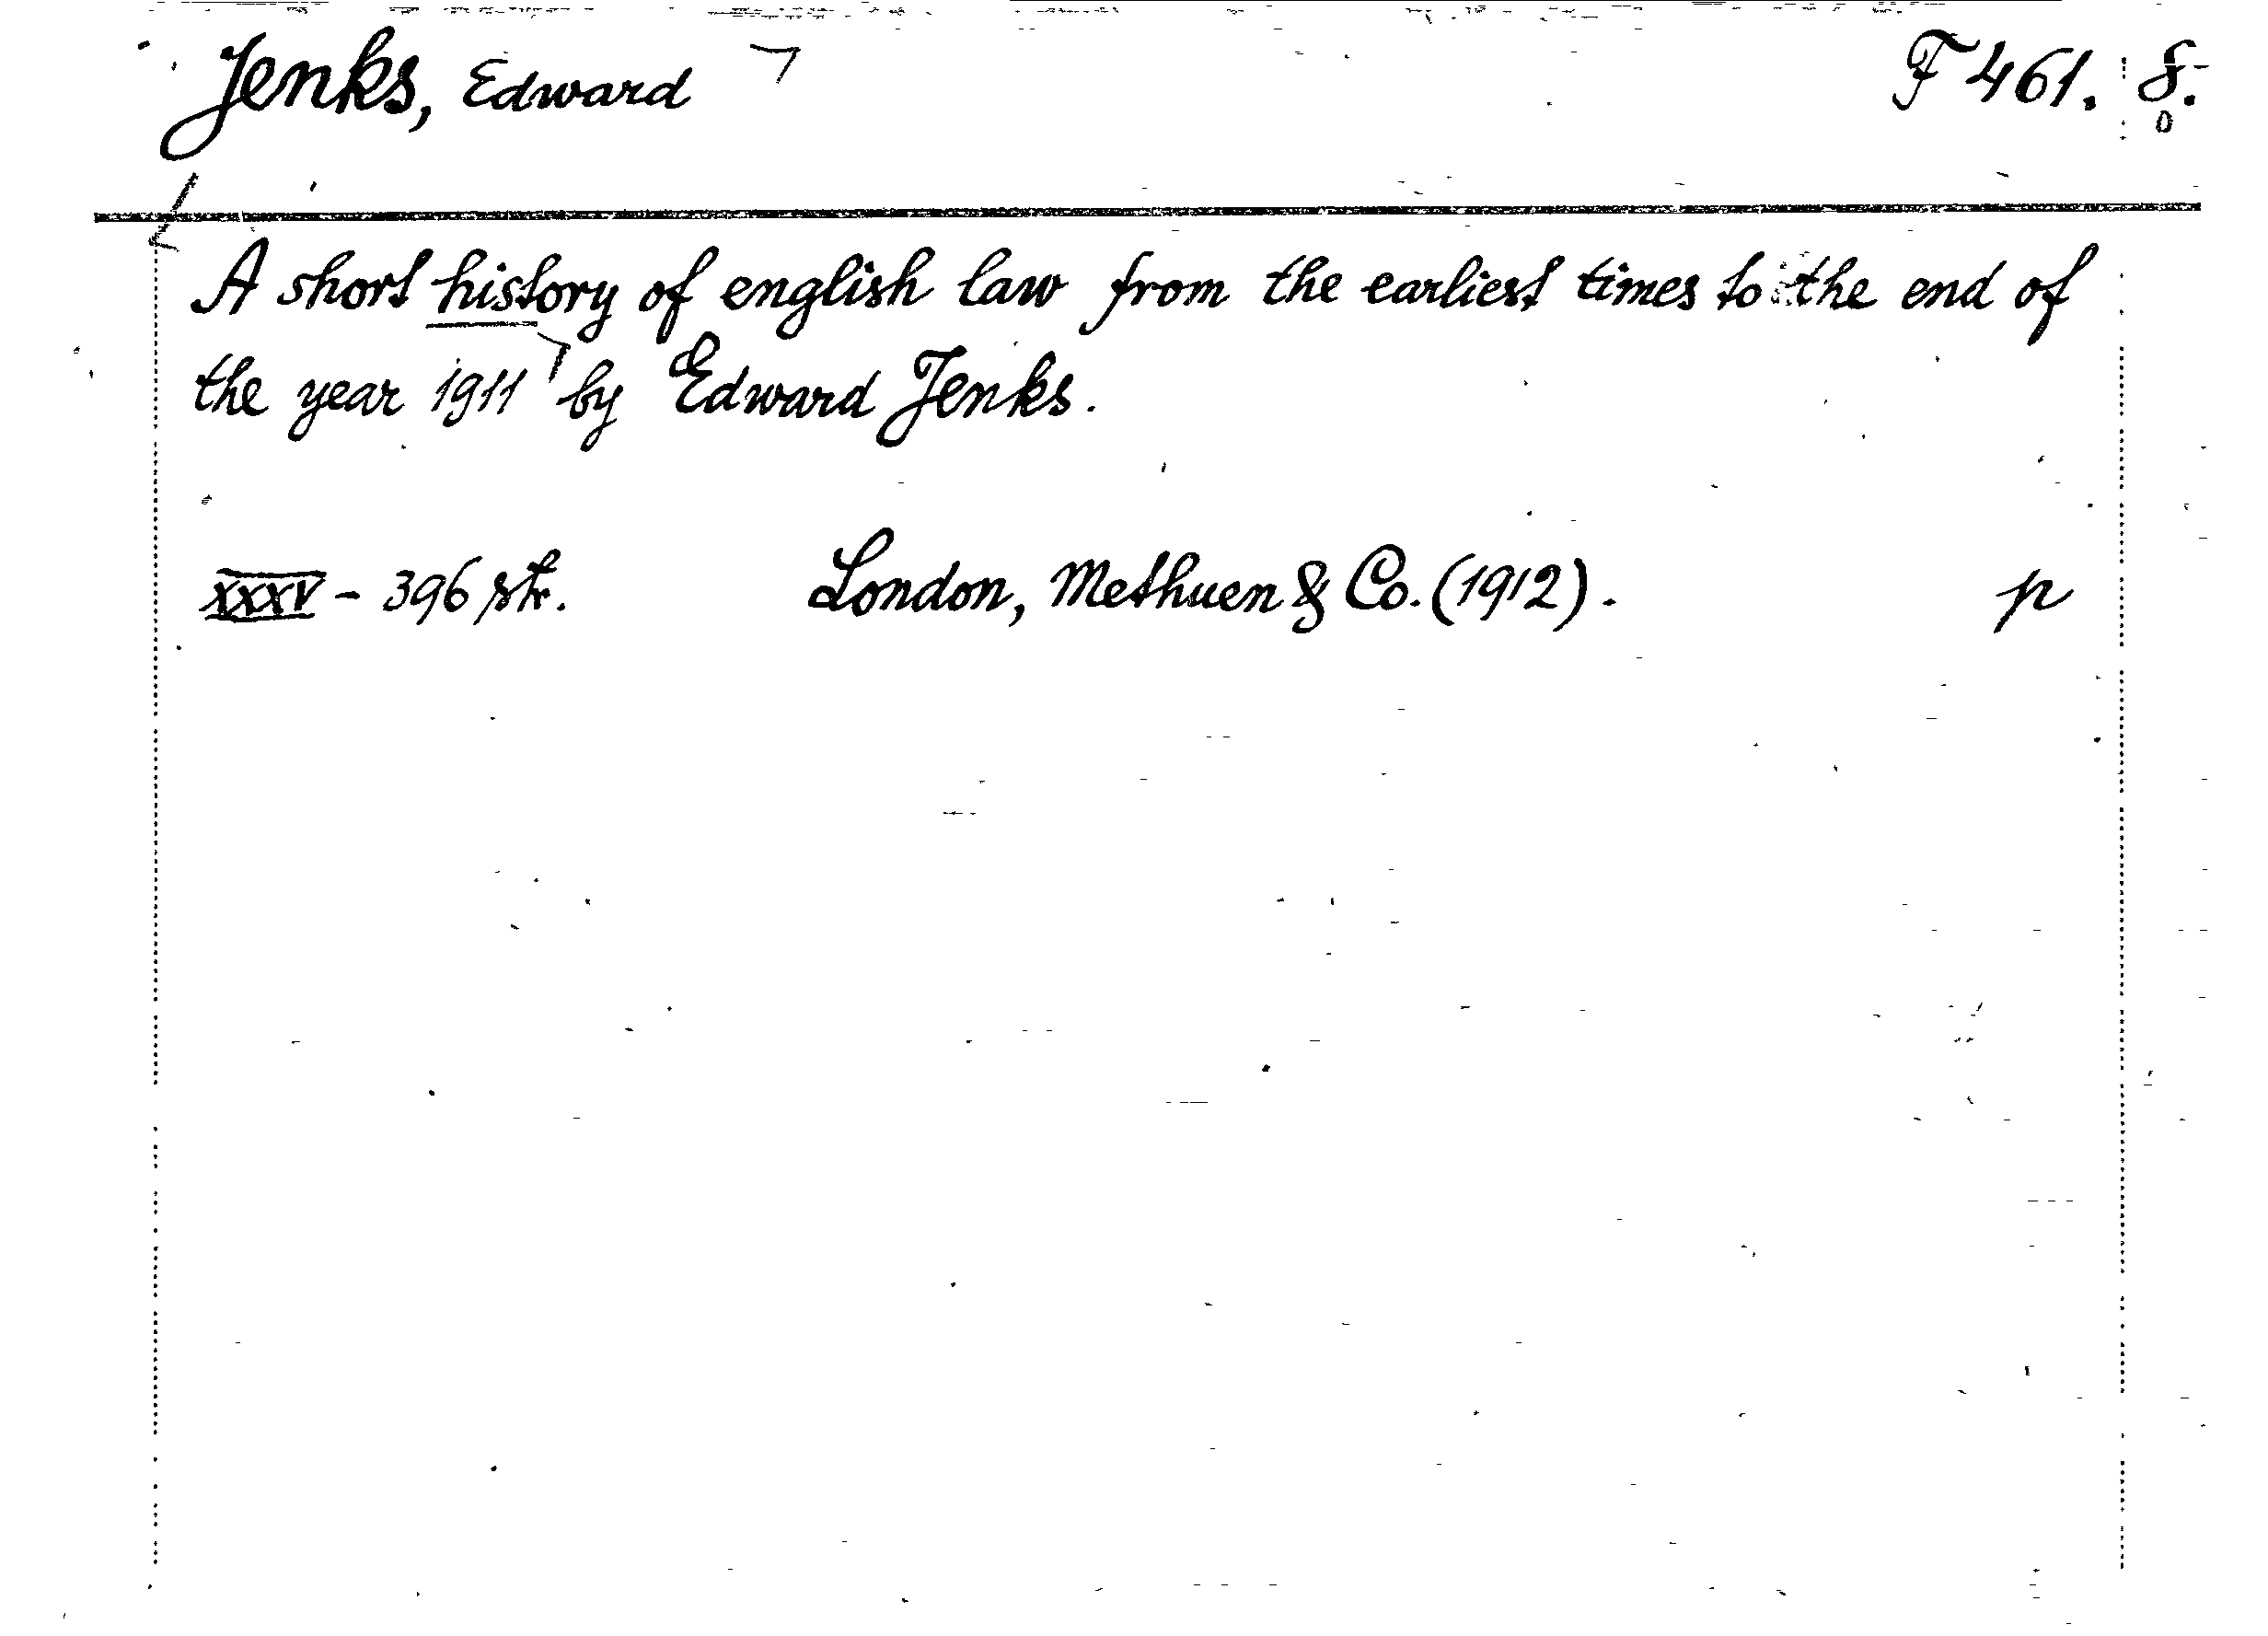 Jenks, Edward F 461. 8.
A short history of english law from the earliest times to the end of
the year 1911 by Edward Jenks.
XXXV - 396 str. London, Methuen & Co. (1912). p